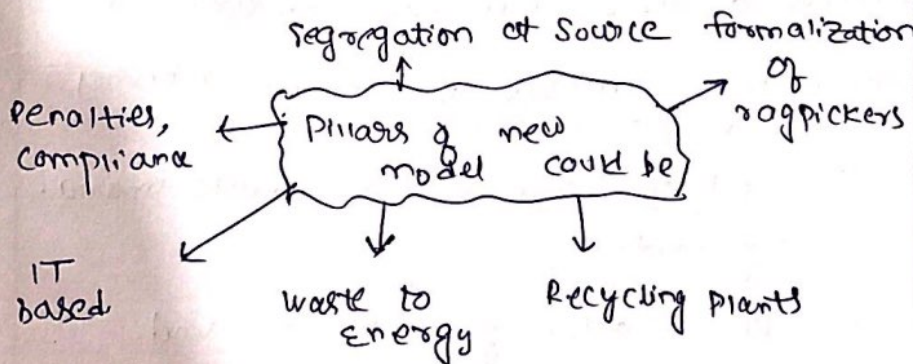 Segregation at Source
formalization
of
ragpickers
Penalties,
compliance
Pillars of new
model could be
IT
based
Waste to
Energy
Recycling Plants